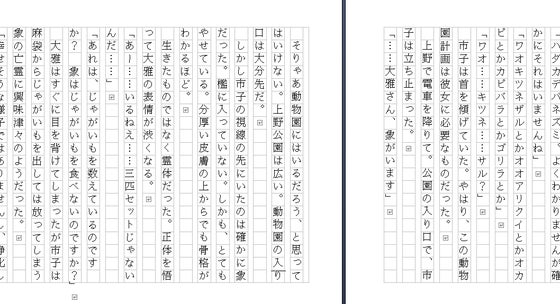 「ハダカデバネズミ。よくわかりませんが
かにそれはいませんね」
「ワオキツネザルとかオオアリクイとかオカ
ピとかカピバラとかゴリラとか」
「ワオ……キツネ……サル？」
市子は首を傾げていた。やはり、この動物
園計画は彼女に必要なものだった。
上野で電車を降りて。公園の入り口で、市
子は立ち止まった。
「…大雅さん、象がいます」
そりゃあ動物園にはいるだろう、と思って
はいけない。上野公園は広い。動物園の入り
口は大分先だ。
しかし市子の視線の先にいたのは確かに象
だった。檻に入っていない。しかも、とても
やせている。分厚い皮膚の上からでも骨格が
わかるほど。
生きたものではなく霊体だった。正体を悟
って大雅の表情が渋くなる。
「あー……いるねえ……三匹セットじゃない
んだ……」
「あれは、じゃがいもを数えているのです
か？　象はじゃがいもを食べないのですか？」
大雅はすぐに目を背けてしまったが市子は
麻袋からじゃがいもを出しては放ってしまう
象の亡霊に興味津々のようだった。